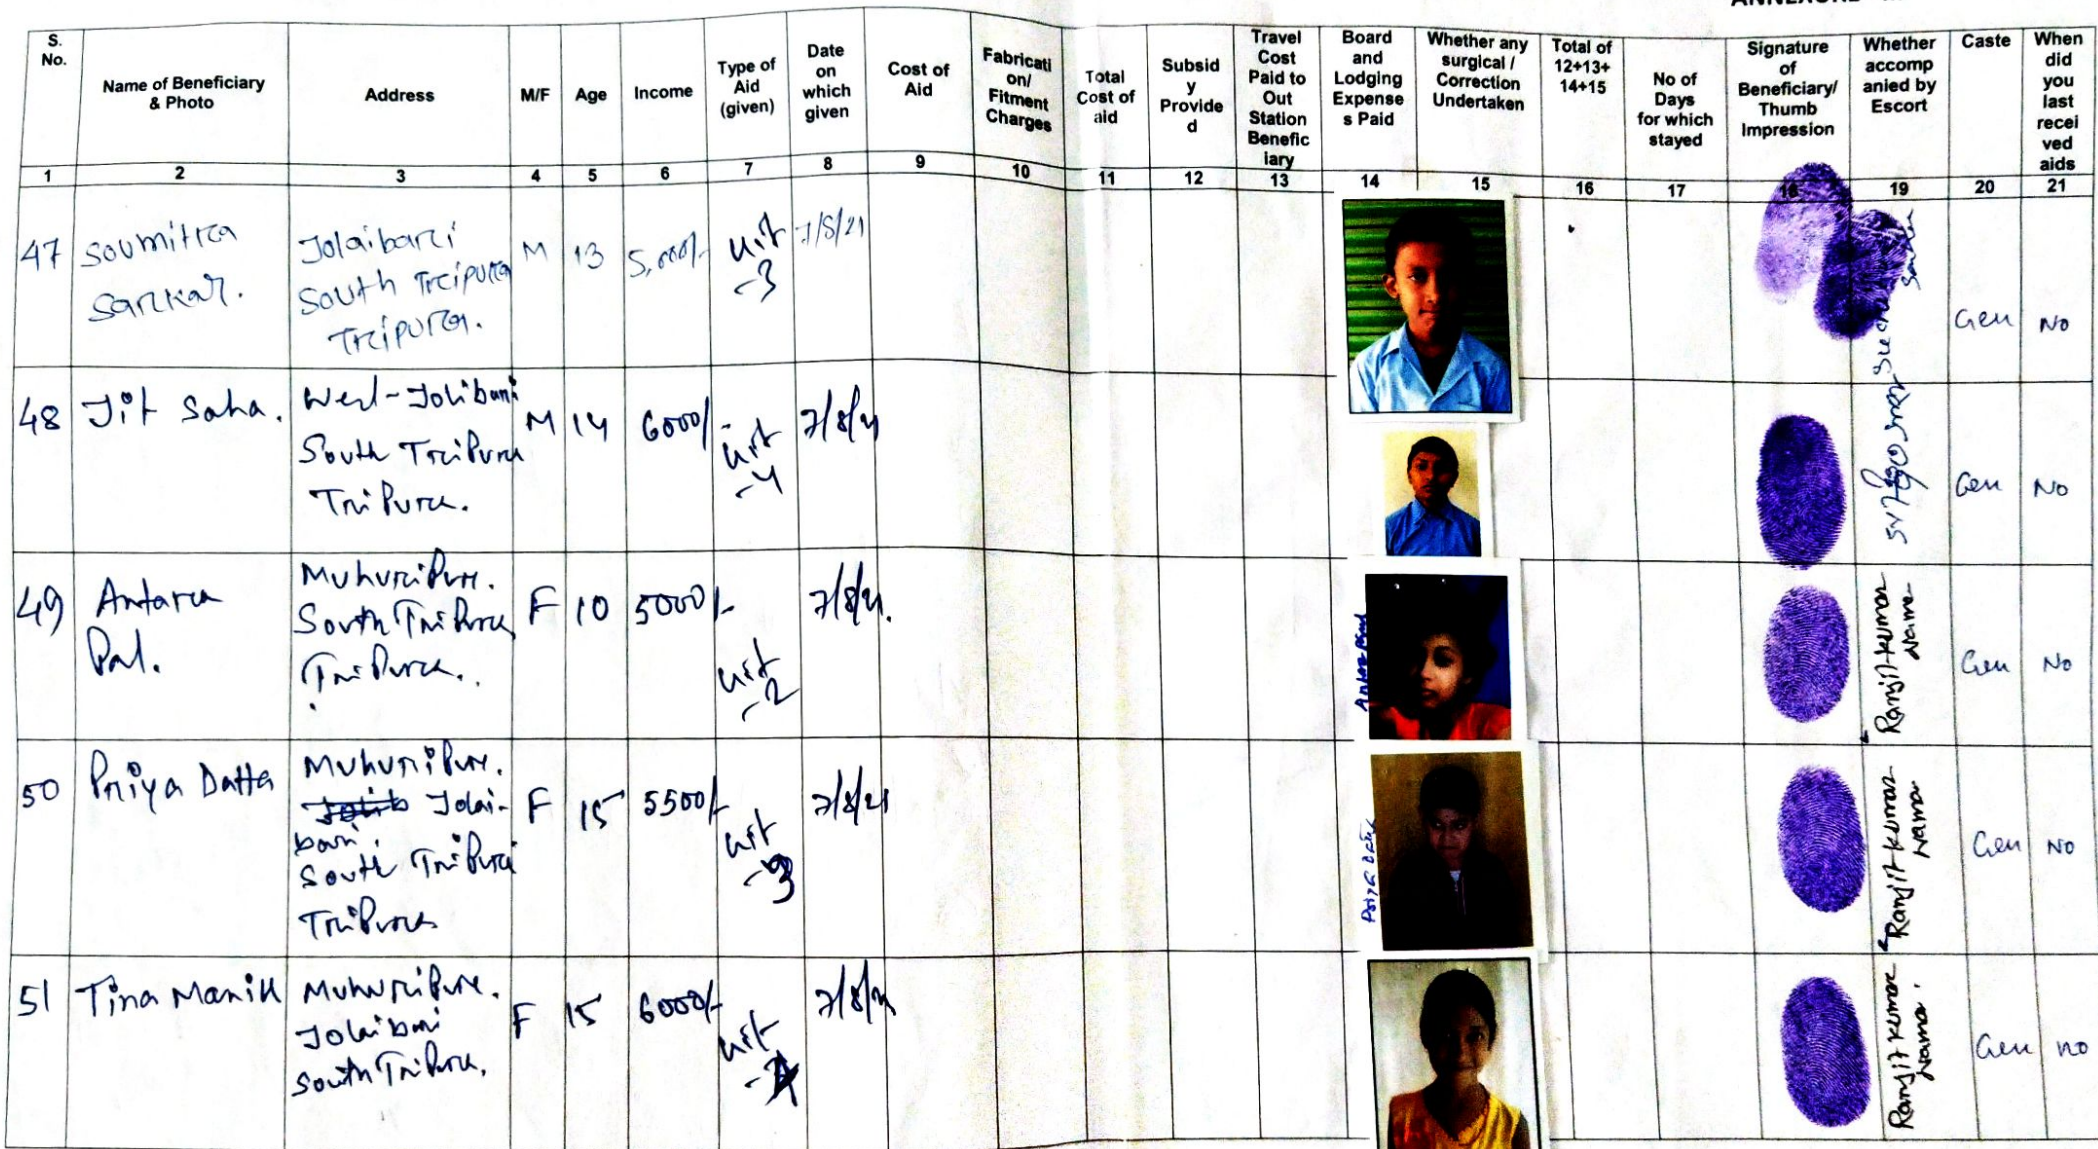 ANNEXURE
S. No.
Name of Beneficiary & Photo
Address
M/F
Age
Income
Type of Aid (given)
Date on which given
Cost of Aid
Fabricati on/ Fitment Charges
Total Cost of aid
Subsid y Provide d
Travel Cost Paid to Out Station Benefic iary
Board and Lodging Expense s Paid
Whether any surgical / Correction Undertaken
Total of 12+13+ 14+15
No of Days for which stayed
Signature of Beneficiary/ Thumb Impression
Whether accomp anied by Escort
Caste
When did you last recei ved aids
1 2 3 4 5 6 7 8 9 10 11 12 13 14 15 16 17 18 19 20 21
47 Soumitra Sarkar. Jolaibari South Tripura Tripura. M 13 5,000/- Kit -3 7/8/21 Gen No
48 Jit Saha. West-Jolibari South Tripura Tripura. M 14 6000/- Kit -4 7/8/21 Gen No
49 Antara Pal. Muhuripur. South Tripura Tripura. F 10 5000/- Kit -2 7/8/21. Antara Paul Ranjit Kumar Nama Gen No
50 Priya Datta Muhuripur. Jolai- bari. South Tripura Tripura F 15 5500/- Kit -3 7/8/21 Priya Datta Ranjit Kumar Nama Gen No
51 Tina Manik Muhuripur. Jolaibari South Tripura. F 15 6000/- Kit 7/8/21 Ranjit Kumar Nama. Gen no